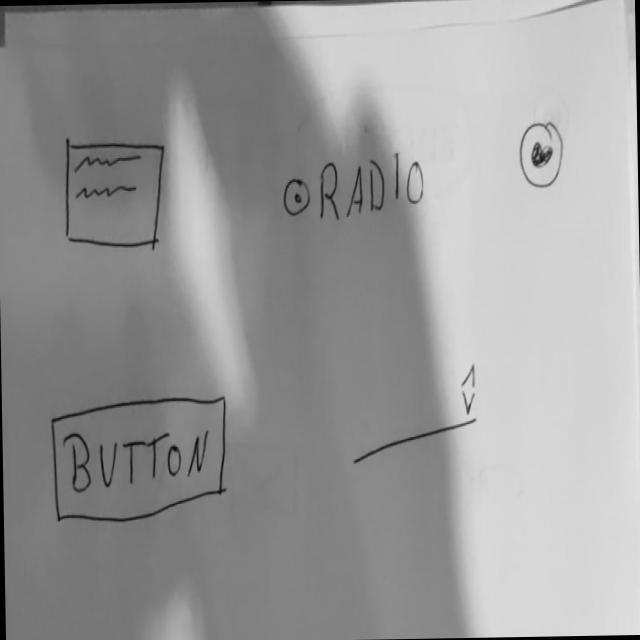 RADIO
BUTTON